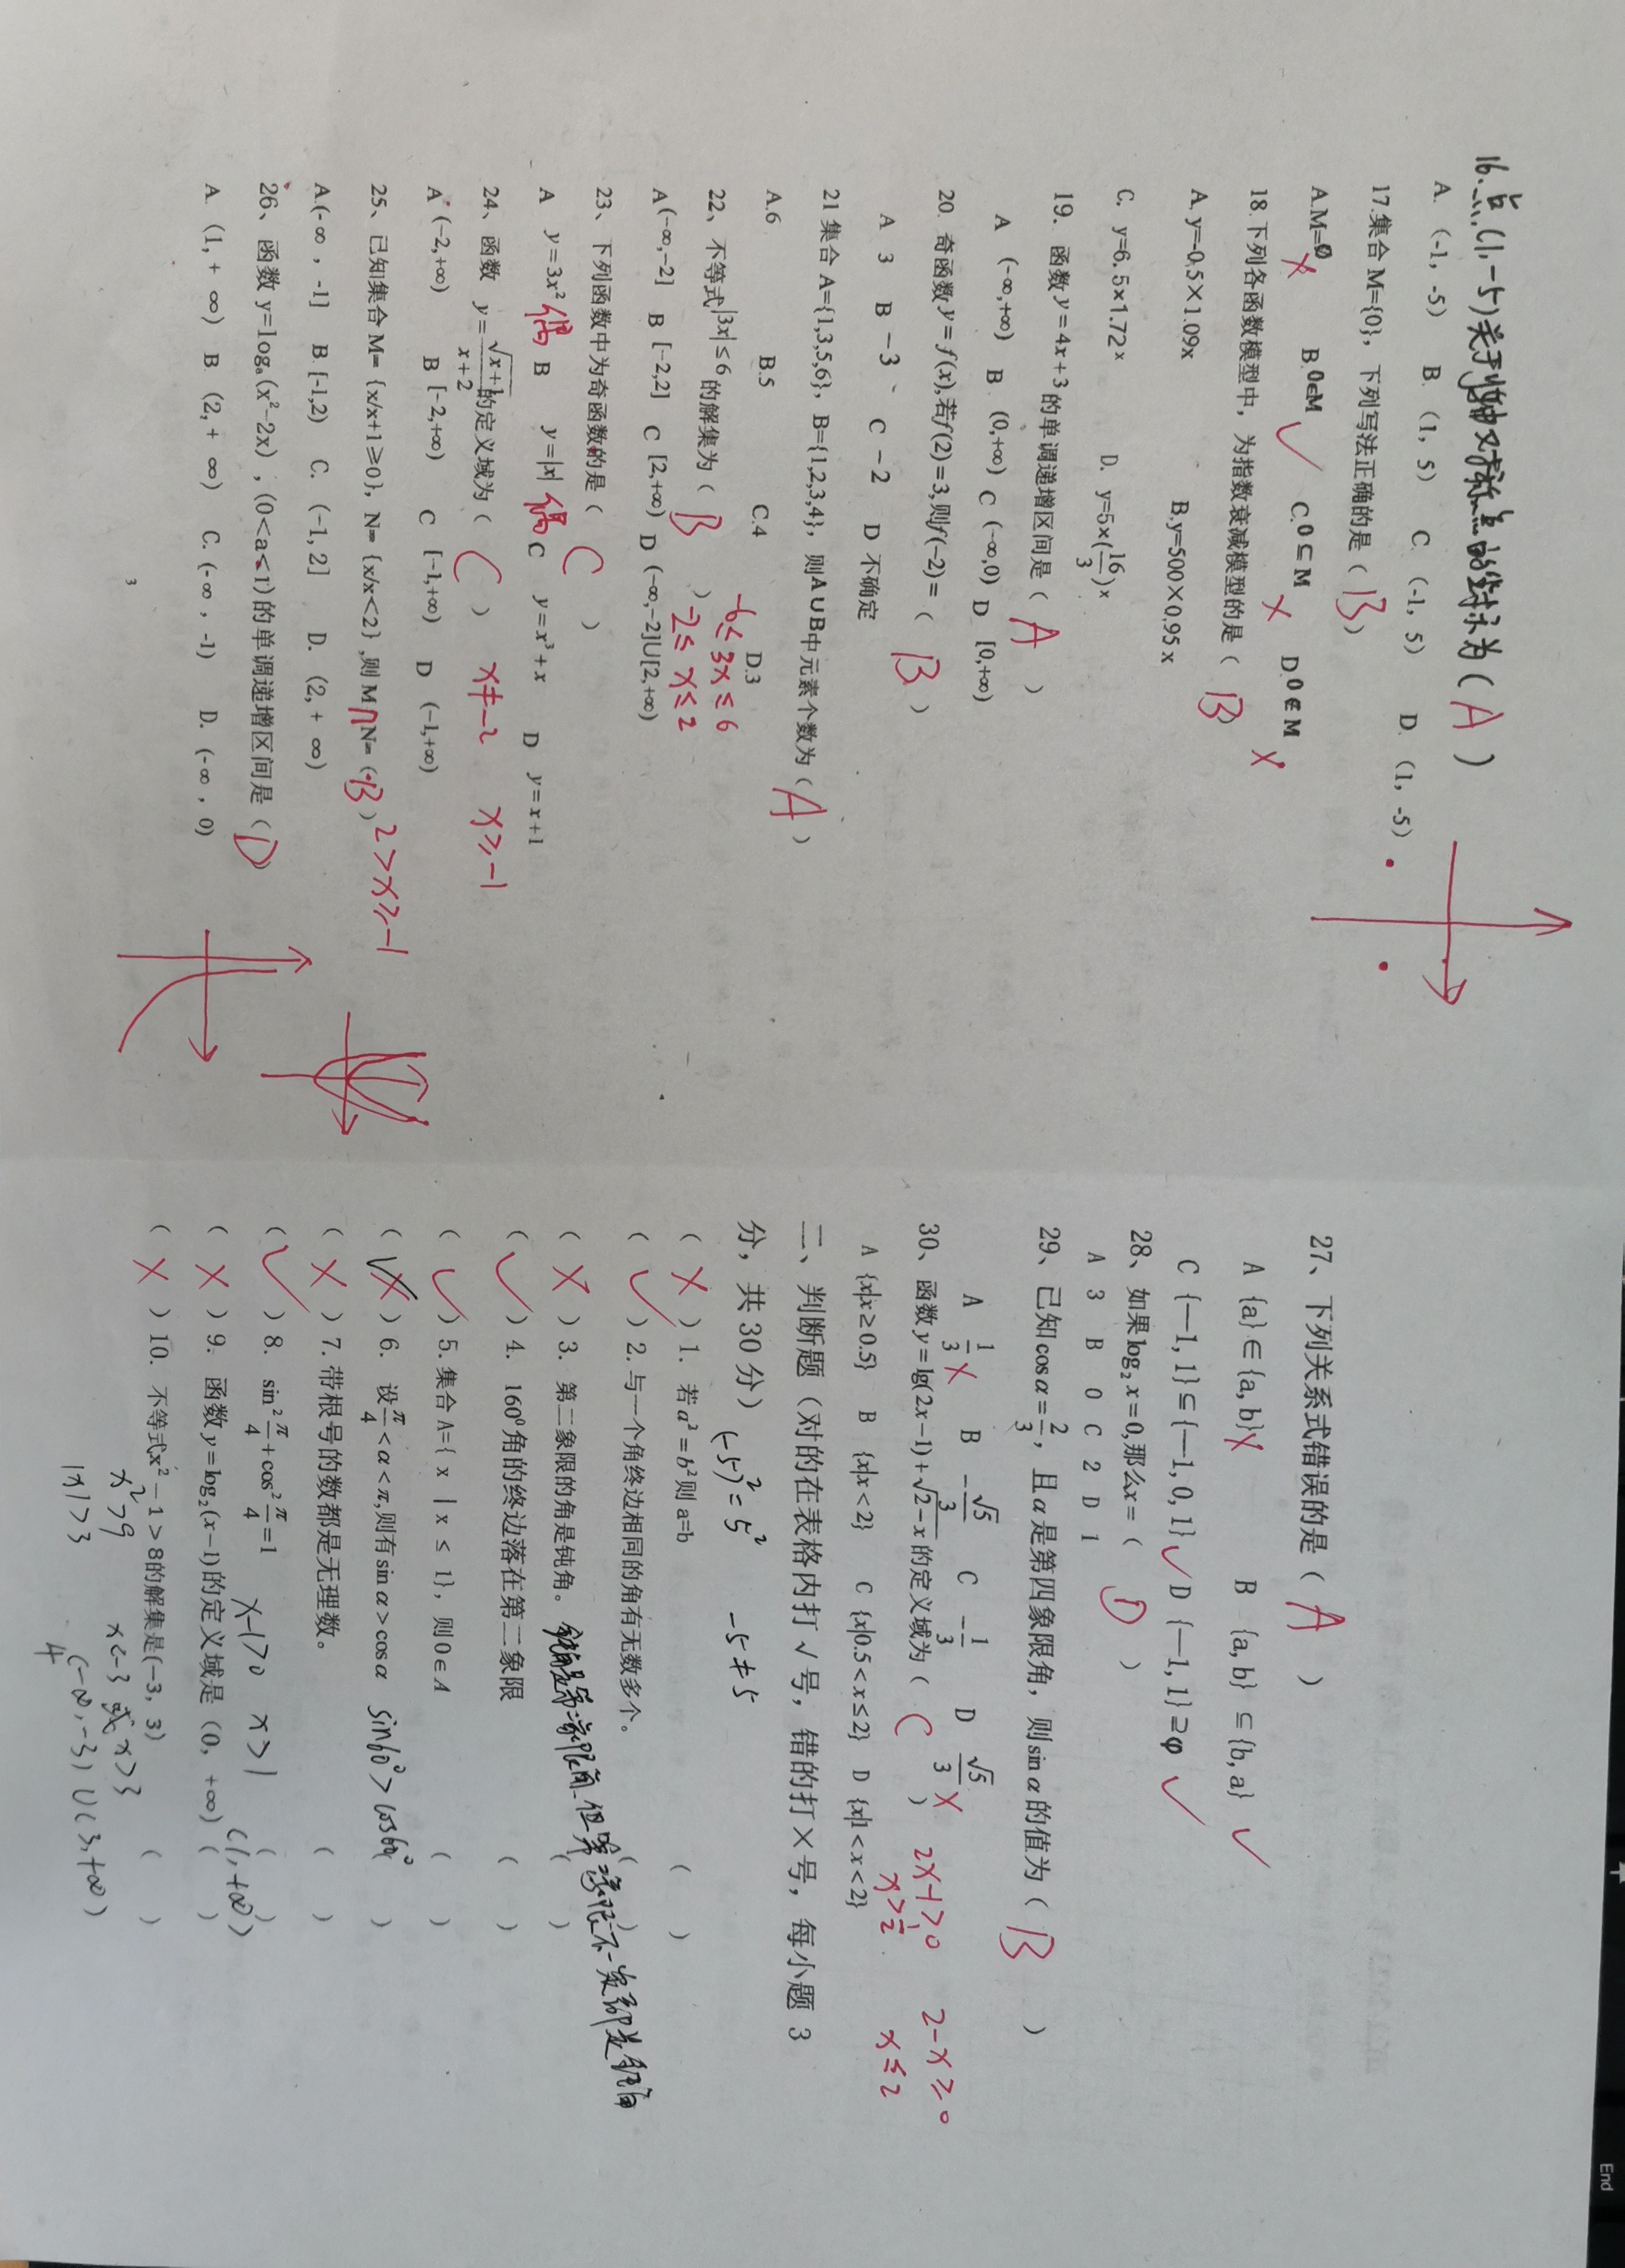 16. 点(1,-5)关于y轴对称点的坐标为( A )
A. (-1, -5) B. (1, 5) C. (-1, 5) D. (1, -5)
17.集合 M={0}, 下列写法正确的是 ( B )
A.M=∅ × B.0∈M ✓ C.0⊆M × D.0∉M ×
18.下列各函数模型中, 为指数衰减模型的是 ( B )
A.y=-0.5×1.09x B.y=500×0.95x
C. y=6.5×1.72ˣ D. y=5×(16/3)ˣ
19. 函数 y=4x+3 的单调递增区间是 ( A )
A (-∞,+∞) B (0,+∞) C (-∞,0) D [0,+∞)
20. 奇函数 y=f(x),若f(2)=3,则f(-2)= ( B )
A 3 B -3、 C -2 D 不确定
21 集合 A={1,3,5,6}, B={1,2,3,4}, 则A∪B中元素个数为 ( A )
A.6 B.5 C.4 D.3
-6≤3x≤6
22、不等式|3x|≤6 的解集为 ( B ) -2≤x≤2
A (-∞,-2] B [-2,2] C [2,+∞) D (-∞,-2]∪[2,+∞)
23、下列函数中为奇函数的是 ( C )
A y=3x² 偶 B y=|x| 偶 C y=x³+x D y=x+1
24、函数 y=√(x+1)/(x+2) 的定义域为 ( C ) x≠-2 x≥-1
A (-2,+∞) B [-2,+∞) C [-1,+∞) D (-1,+∞)
25、已知集合 M= {x/x+1≥0}, N= {x/x<2},则 M∩N= ( B ) 2>x≥-1
A.(-∞, -1] B. [-1,2) C. (-1, 2] D. (2, + ∞)
26、函数 y=logₐ(x²-2x) , (0<a<1)的单调递增区间是 ( D )
A. (1, + ∞) B. (2, + ∞) C. (-∞, -1) D. (-∞, 0)
3
27、下列关系式错误的是 ( A )
A {a}∈{a,b} × B {a,b}⊆{b,a} ✓
C {—1,1}⊆{—1,0,1} ✓ D {—1,1}⊇φ ✓
28、如果log₂x=0,那么x= ( D )
A 3 B 0 C 2 D 1
29、已知cosα=2/3, 且α是第四象限角, 则sinα的值为 ( B )
A 1/3 × B -√5/3 C -1/3 D √5/3 ×
30、函数y=lg(2x-1)+√(2-x) 的定义域为 ( C ) 2x-1>0 2-x≥0
x>1/2 x≤2
A {x|x≥0.5} B {x|x<2} C {x|0.5<x≤2} D {x|1<x<2}
二、判断题 (对的在表格内打√号, 错的打×号, 每小题 3
分, 共 30 分) (-5)²=5² -5≠5
( × ) 1. 若a²=b²则a=b ( )
( ✓ ) 2.与一个角终边相同的角有无数多个。 ( )
( × ) 3. 第二象限的角是钝角。 钝角是第二象限角,但第二象限不一定都是钝角 ( )
( ✓ ) 4. 160⁰角的终边落在第二象限 ( )
( ✓ ) 5.集合A={ x | x ≤ 1}, 则0∈A ( )
( × ✓ ) 6. 设π/4<α<π,则有sinα>cosα sin60°>cos60° ( )
( × ) 7.带根号的数都是无理数。 ( )
( ✓ ) 8. sin²π/4+cos²π/4=1 ( )
x-1>0 x>1 (1,+∞)
( × ) 9. 函数y=log₂(x-1)的定义域是 (0, +∞) ( )
( × ) 10. 不等式x²-1>8的解集是(-3, 3) ( )
x²>9 x<-3 或 x>3
|x|>3 (-∞,-3)∪(3,+∞)
4
End